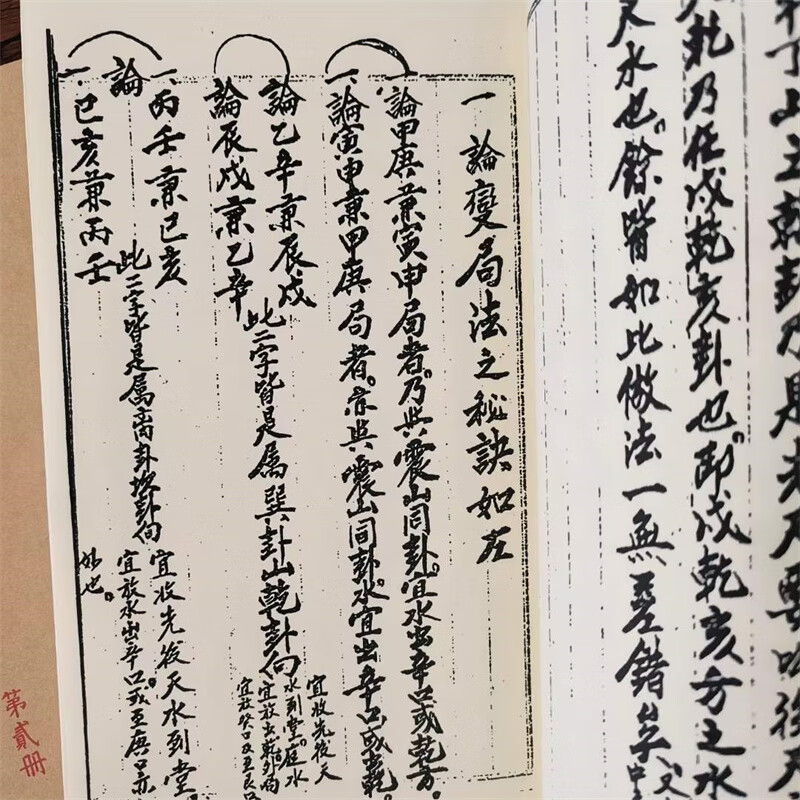 丁山立乾卦乃是來不要收後天
乾乃在戌乾亥卦也。即戌乾亥方之水
天水也。餘皆如此做法一無差錯矣
一論變局法之秘訣如左
一論甲庚兼寅申局者。乃與震山同卦。宜水出辛口或乾方。
一論寅申兼甲庚局者。亦與震山同卦。水宜出辛口或乾
論乙辛兼辰戌
論辰戌兼乙辛
此二字皆是属巽卦山乾卦向
宜放先後天
水到堂。水
宜放出乾
宜放癸口
一丙壬兼巳亥
論
一巳亥兼丙壬
此二字皆是属离卦坎卦向
宜收先後天水到堂
宜放水出辛口。或至庚口亦
妙也。
第貳冊